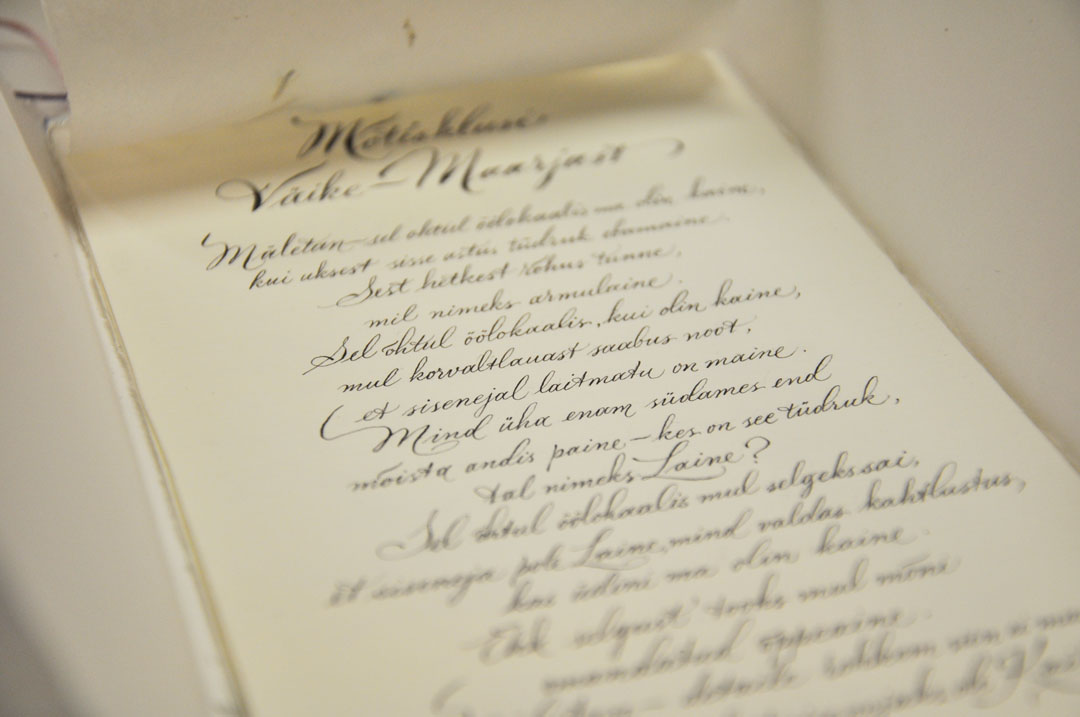 Mõtisklusi
Väike-Maarjast
Mäletan – sel õhtul öölokaalis ma olin kaine,
kui uksest sisse astus tüdruk ebamaine.
Sest hetkest kohus tunne,
mil nimeks armulaine.
Sel õhtul öölokaalis, kui olin kaine,
mul kõrvaltlauast saabus noot,
et sisenejal laitmatu on maine.
Mind üha enam südames end
mõista andis paine – kes on see tüdruk,
tal nimeks Laine?
Sel õhtul öölokaalis mul selgeks sai,
et siseneja pole Laine, mind valdas kahtlustus,
kas üdini ma olin kaine.
Ehk selgust tooks mul mõni